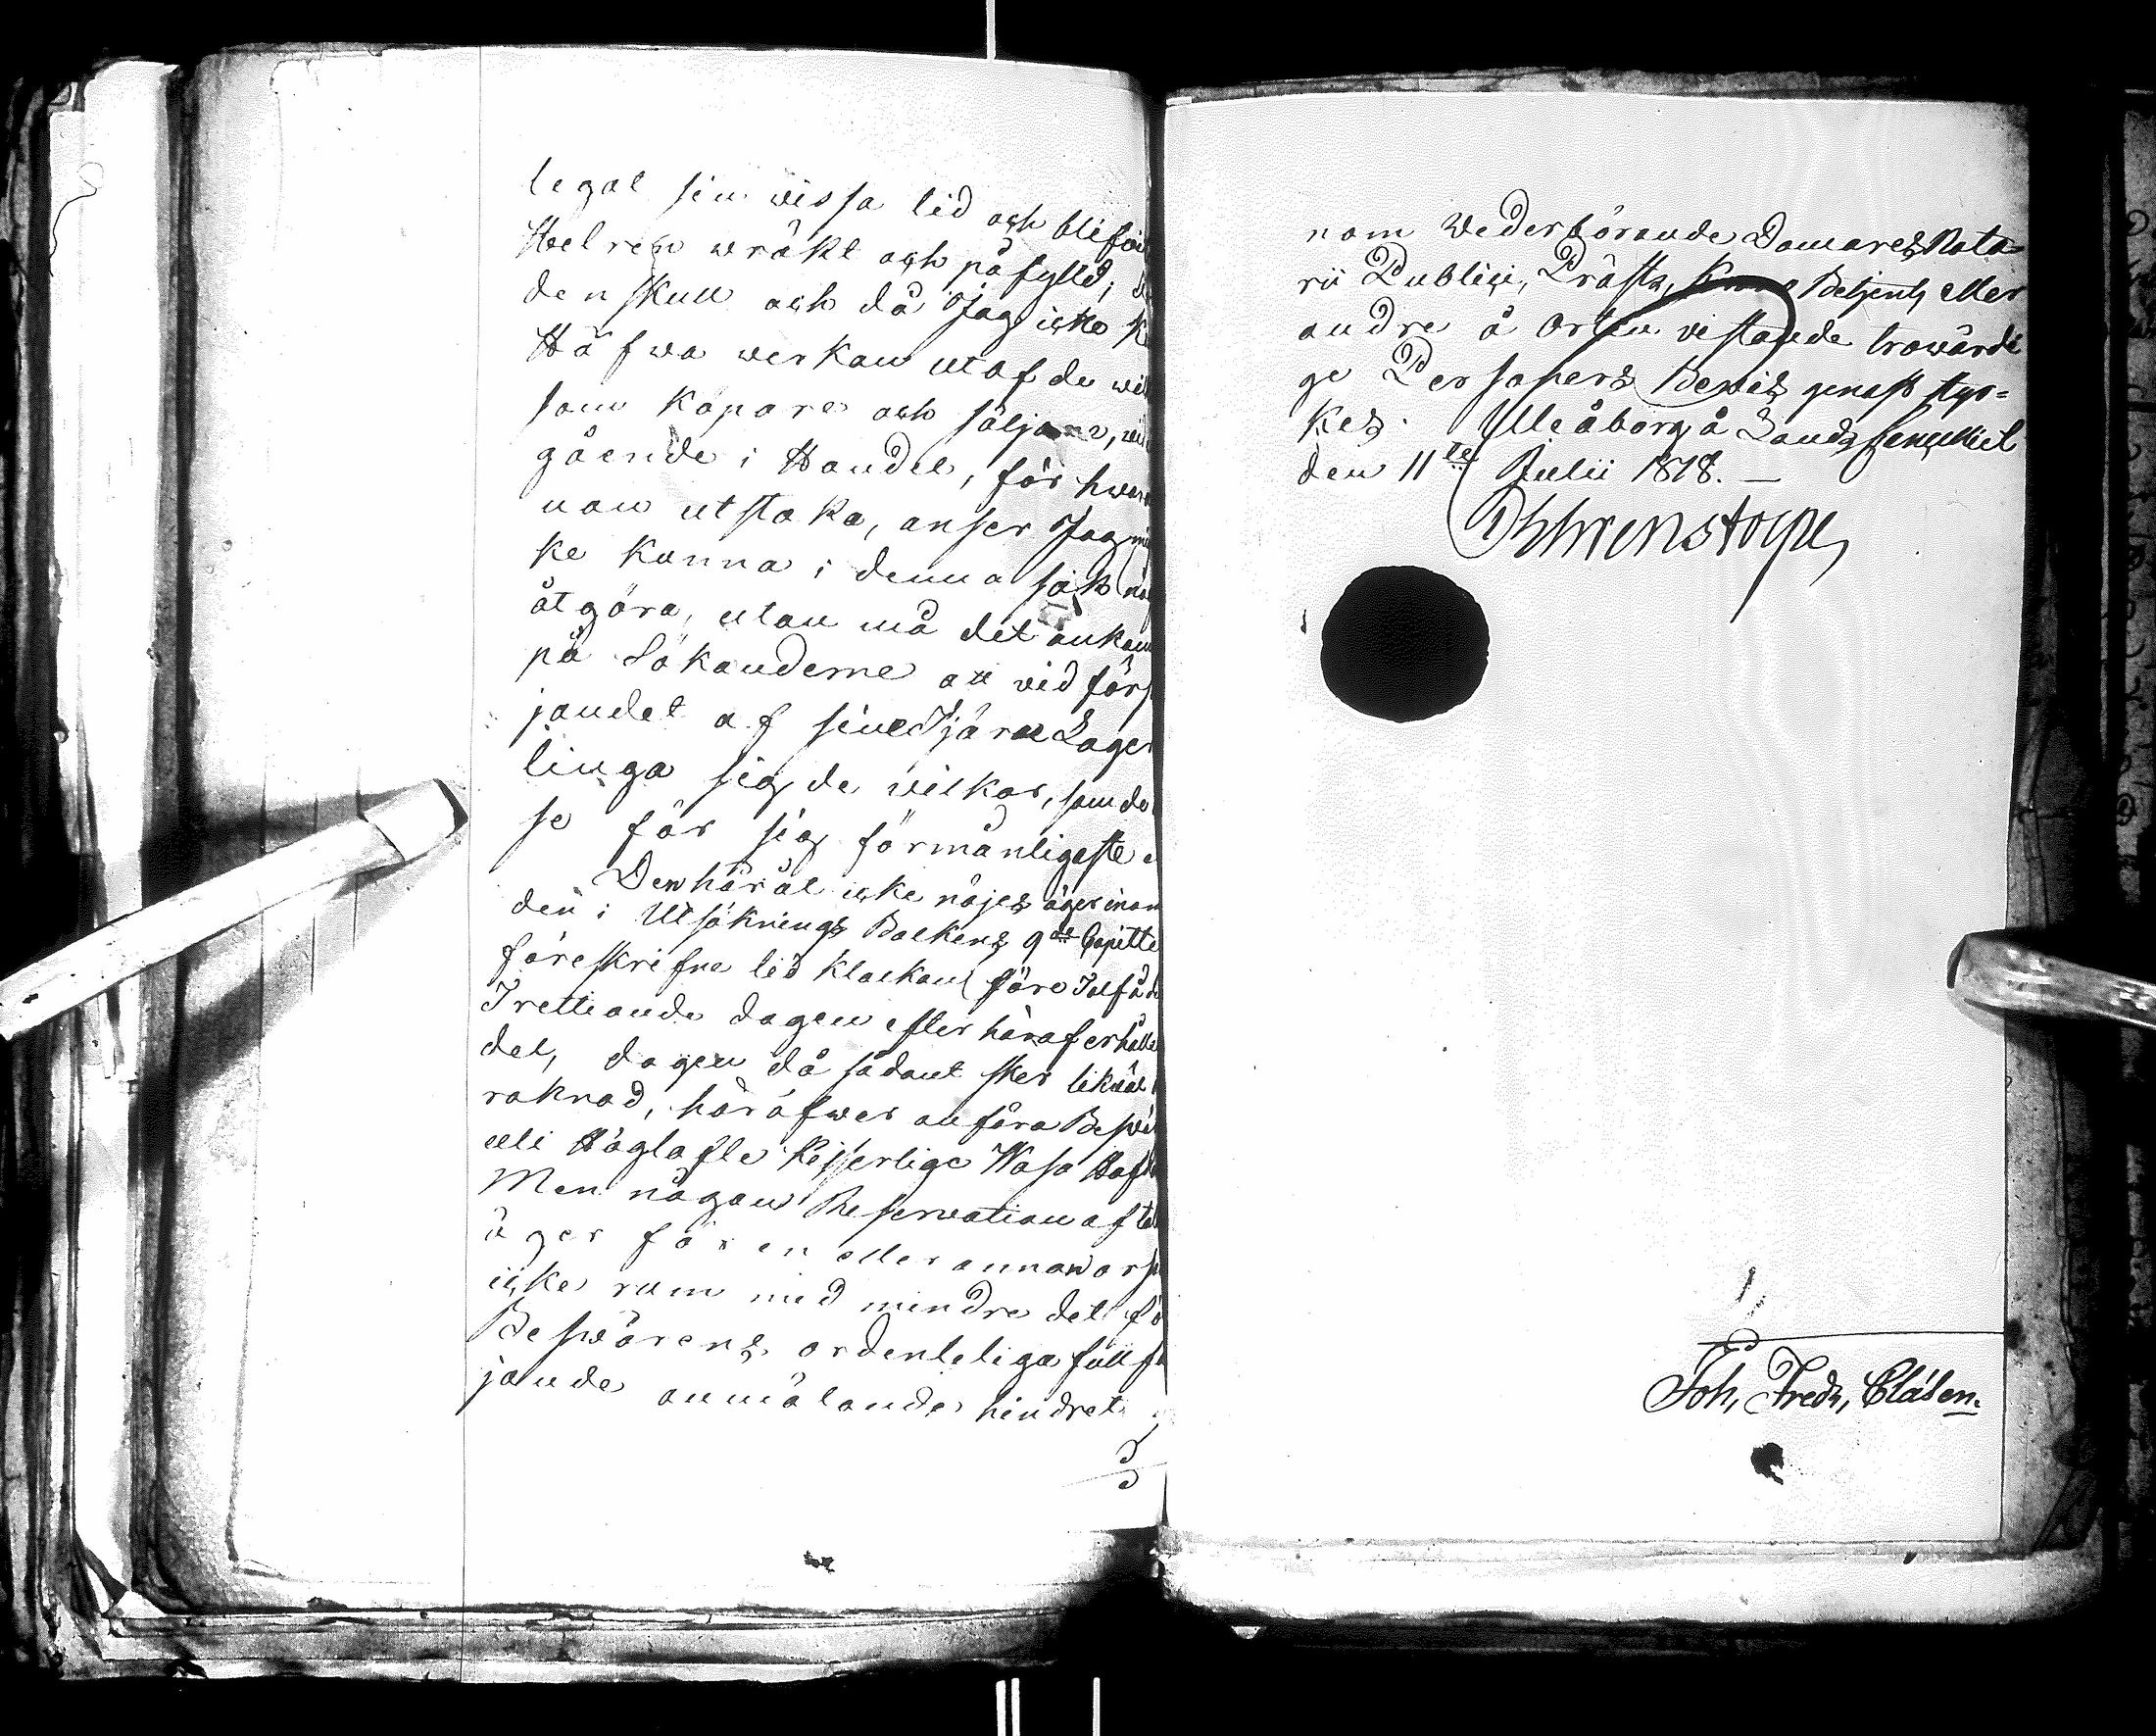 legat sin vissa tid och blifvi
Helren wräkt och påfylld; d
den skull och då Jag icke k
Häfwa werkan utaf de wil
som köpare och säljare, in
gående i Handel, för hwar
nan utstaka, anser Jag mig
ke kunna i denna sak nå
åtgöra, utan må det ankom
på Sökanderne att vid förs
jandet af sine Tjäru Lager
tinga sig de vilkor, som de
se för sig förmånligaste.
Den härát icke nöjes äger inom
den i Utsöknings Balkens 9de Capittel
föreskrifne tid klockan före Tolf å d
Trettionde dagen efter häraf erhålle
del, dagen då sådant sker likväl
räknad, häröfwer anföra Beswä
uti Höglofle Kejserlige Wasa Hof
Men någon Reservation af ta
äger för en eller annan orsa
icke rum med mindre det fö
Beswärens ordenteliga fullföl
jande anmälande hindret
nom Wederbörande Domares, Nota=
rii Publici, Prästs, Krono Betjents eller
andre å Orten vistande trowärdi
ge Personers Bewis genast styr=
kes. Uleåborg å Lands Cancelliet
den 11te Julii 1818. —
Ehrenstolpe
Joh, Fredr, Clásen.